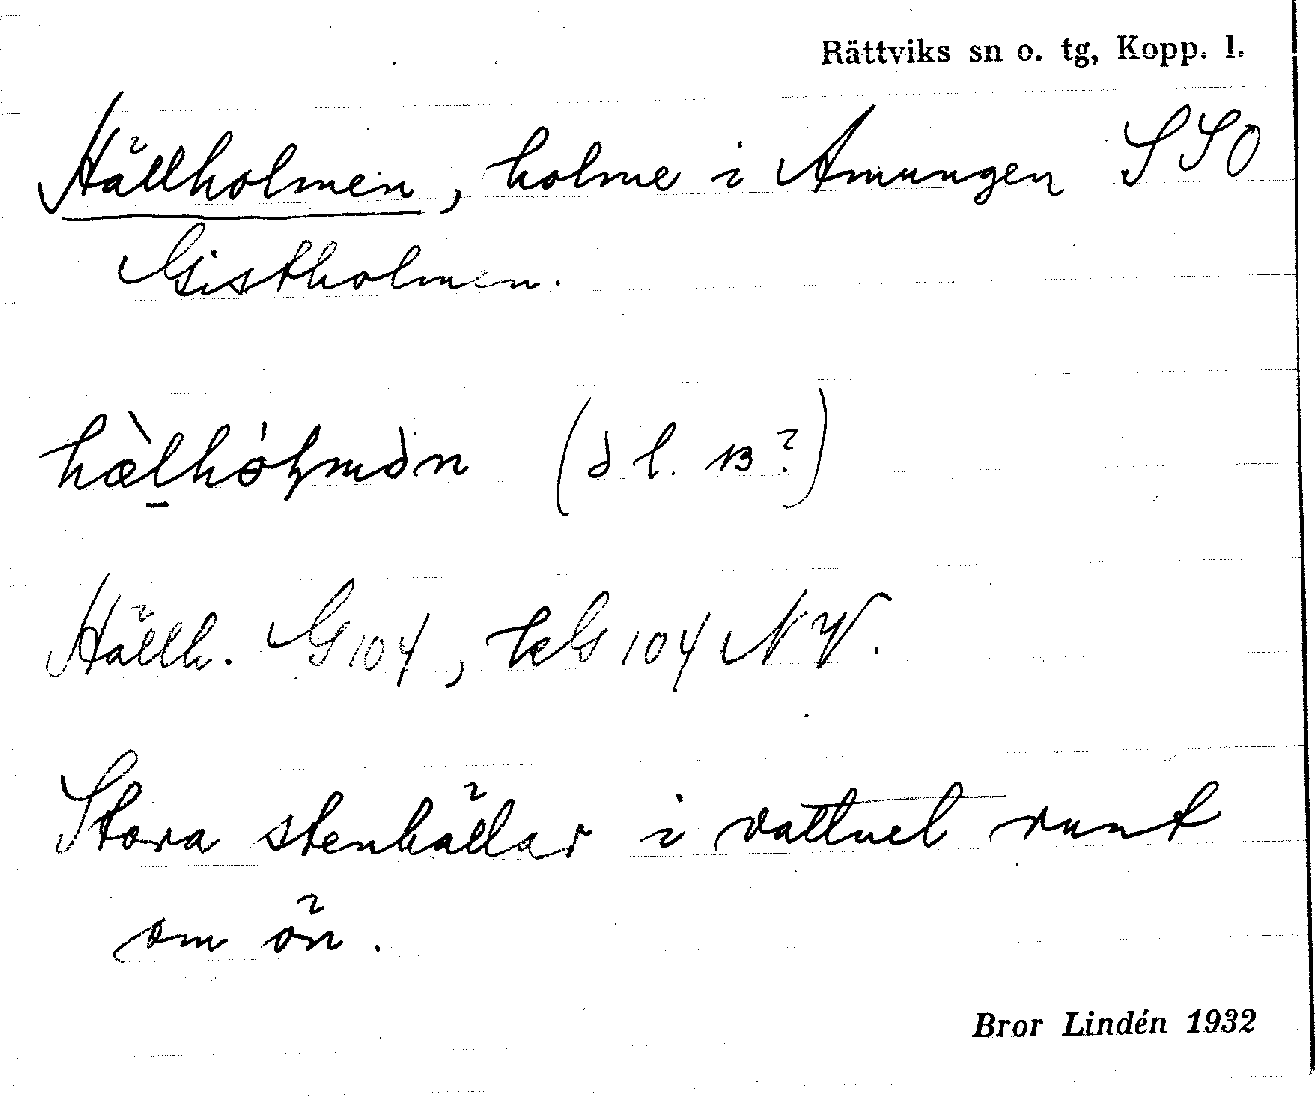 Rättviks sn o. tg, Kopp. l.
Hällholmen, holme i Amungen SSO
Gistholmen.
hæ̀lhólmən (ə l. ɜ?)
Hällh. G 104, kG 104 NV.
Stora stenhällar i vattnet runt
om ön.
Bror Lindén 1932